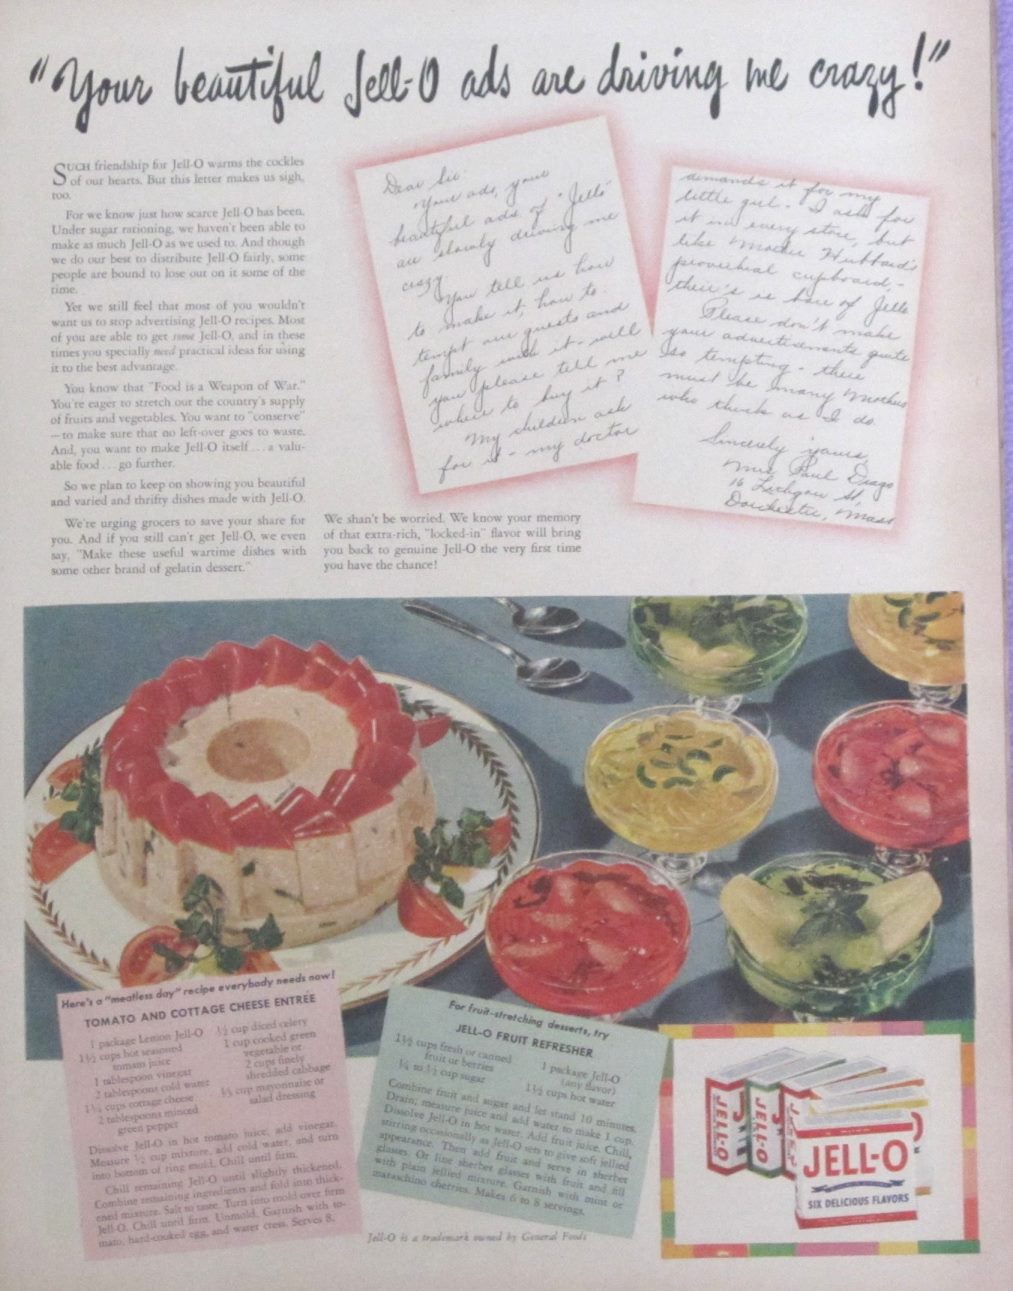 "Your beautiful Jell-O ads are driving me crazy!"
SUCH friendship for Jell-O warms the cockles
of our hearts. But this letter makes us sigh,
too.
For we know just how scarce Jell-O has been.
Under sugar rationing, we haven't been able to
make as much Jell-O as we used to. And though
we do our best to distribute Jell-O fairly, some
people are bound to lose out on it some of the
time.
Yet we still feel that most of you wouldn't
want us to stop advertising Jell-O recipes. Most
of you are able to get some Jell-O, and in these
times you specially need practical ideas for using
it to the best advantage.
You know that "Food is a Weapon of War."
You're eager to stretch out the country's supply
of fruits and vegetables. You want to "conserve"
—to make sure that no left-over goes to waste.
And, you want to make Jell-O itself . . . a valu-
able food . . . go further.
So we plan to keep on showing you beautiful
and varied and thrifty dishes made with Jell-O.
We're urging grocers to save your share for
you. And if you still can't get Jell-O, we even
say, "Make these useful wartime dishes with
some other brand of gelatin dessert."
We shan't be worried. We know your memory
of that extra-rich, "locked-in" flavor will bring
you back to genuine Jell-O the very first time
you have the chance!
Dear Sir
Your ads, your
beautiful ads of "Jello"
are slowly driving me
crazy
You tell us how
to make it, how to
tempt our guests and
family with it - will
you please tell me
where to buy it?
My children ask
for it - my doctor
demands it for my
little girl - I ask for
it in every store, but
like Mother Hubbard's
proverbial cupboard, -
there's is bare of Jello
Please don't make
your advertisements quite
so tempting - there
must be many Mothers
who think as I do.
Sincerely yours
Mrs Paul
16 St,
Dorchester, Mass
Here's a "meatless day" recipe everybody needs now!
TOMATO AND COTTAGE CHEESE ENTRÉE
1 package Lemon Jell-O
1½ cups hot seasoned
tomato juice
1 tablespoon vinegar
2 tablespoons cold water
1⅓ cups cottage cheese
2 tablespoons minced
green pepper
½ cup diced celery
1 cup cooked green
vegetable or
2 cups finely
shredded cabbage
⅓ cup mayonnaise or
salad dressing
Dissolve Jell-O in hot tomato juice; add vinegar.
Measure ½ cup mixture, add cold water, and turn
into bottom of ring mold. Chill until firm.
Chill remaining Jell-O until slightly thickened.
Combine remaining ingredients and fold into thick-
ened mixture. Salt to taste. Turn into mold over firm
Jell-O. Chill until firm. Unmold. Garnish with to-
mato, hard-cooked egg, and water cress. Serves 8.
For fruit-stretching desserts, try
JELL-O FRUIT REFRESHER
1½ cups fresh or canned
fruit or berries
¼ to ⅓ cup sugar
1 package Jell-O
(any flavor)
1½ cups hot water
Combine fruit and sugar and let stand 10 minutes.
Drain; measure juice and add water to make 1 cup.
Dissolve Jell-O in hot water. Add fruit juice. Chill,
stirring occasionally as Jell-O sets to give soft jellied
appearance. Then add fruit and serve in sherbet
glasses. Or line sherbet glasses with fruit and fill
with plain jellied mixture. Garnish with mint or
maraschino cherries. Makes 6 to 8 servings.
JELL-O
JELL-O
JELL-O
SIX DELICIOUS FLAVORS
Jell-O is a trademark owned by General Foods